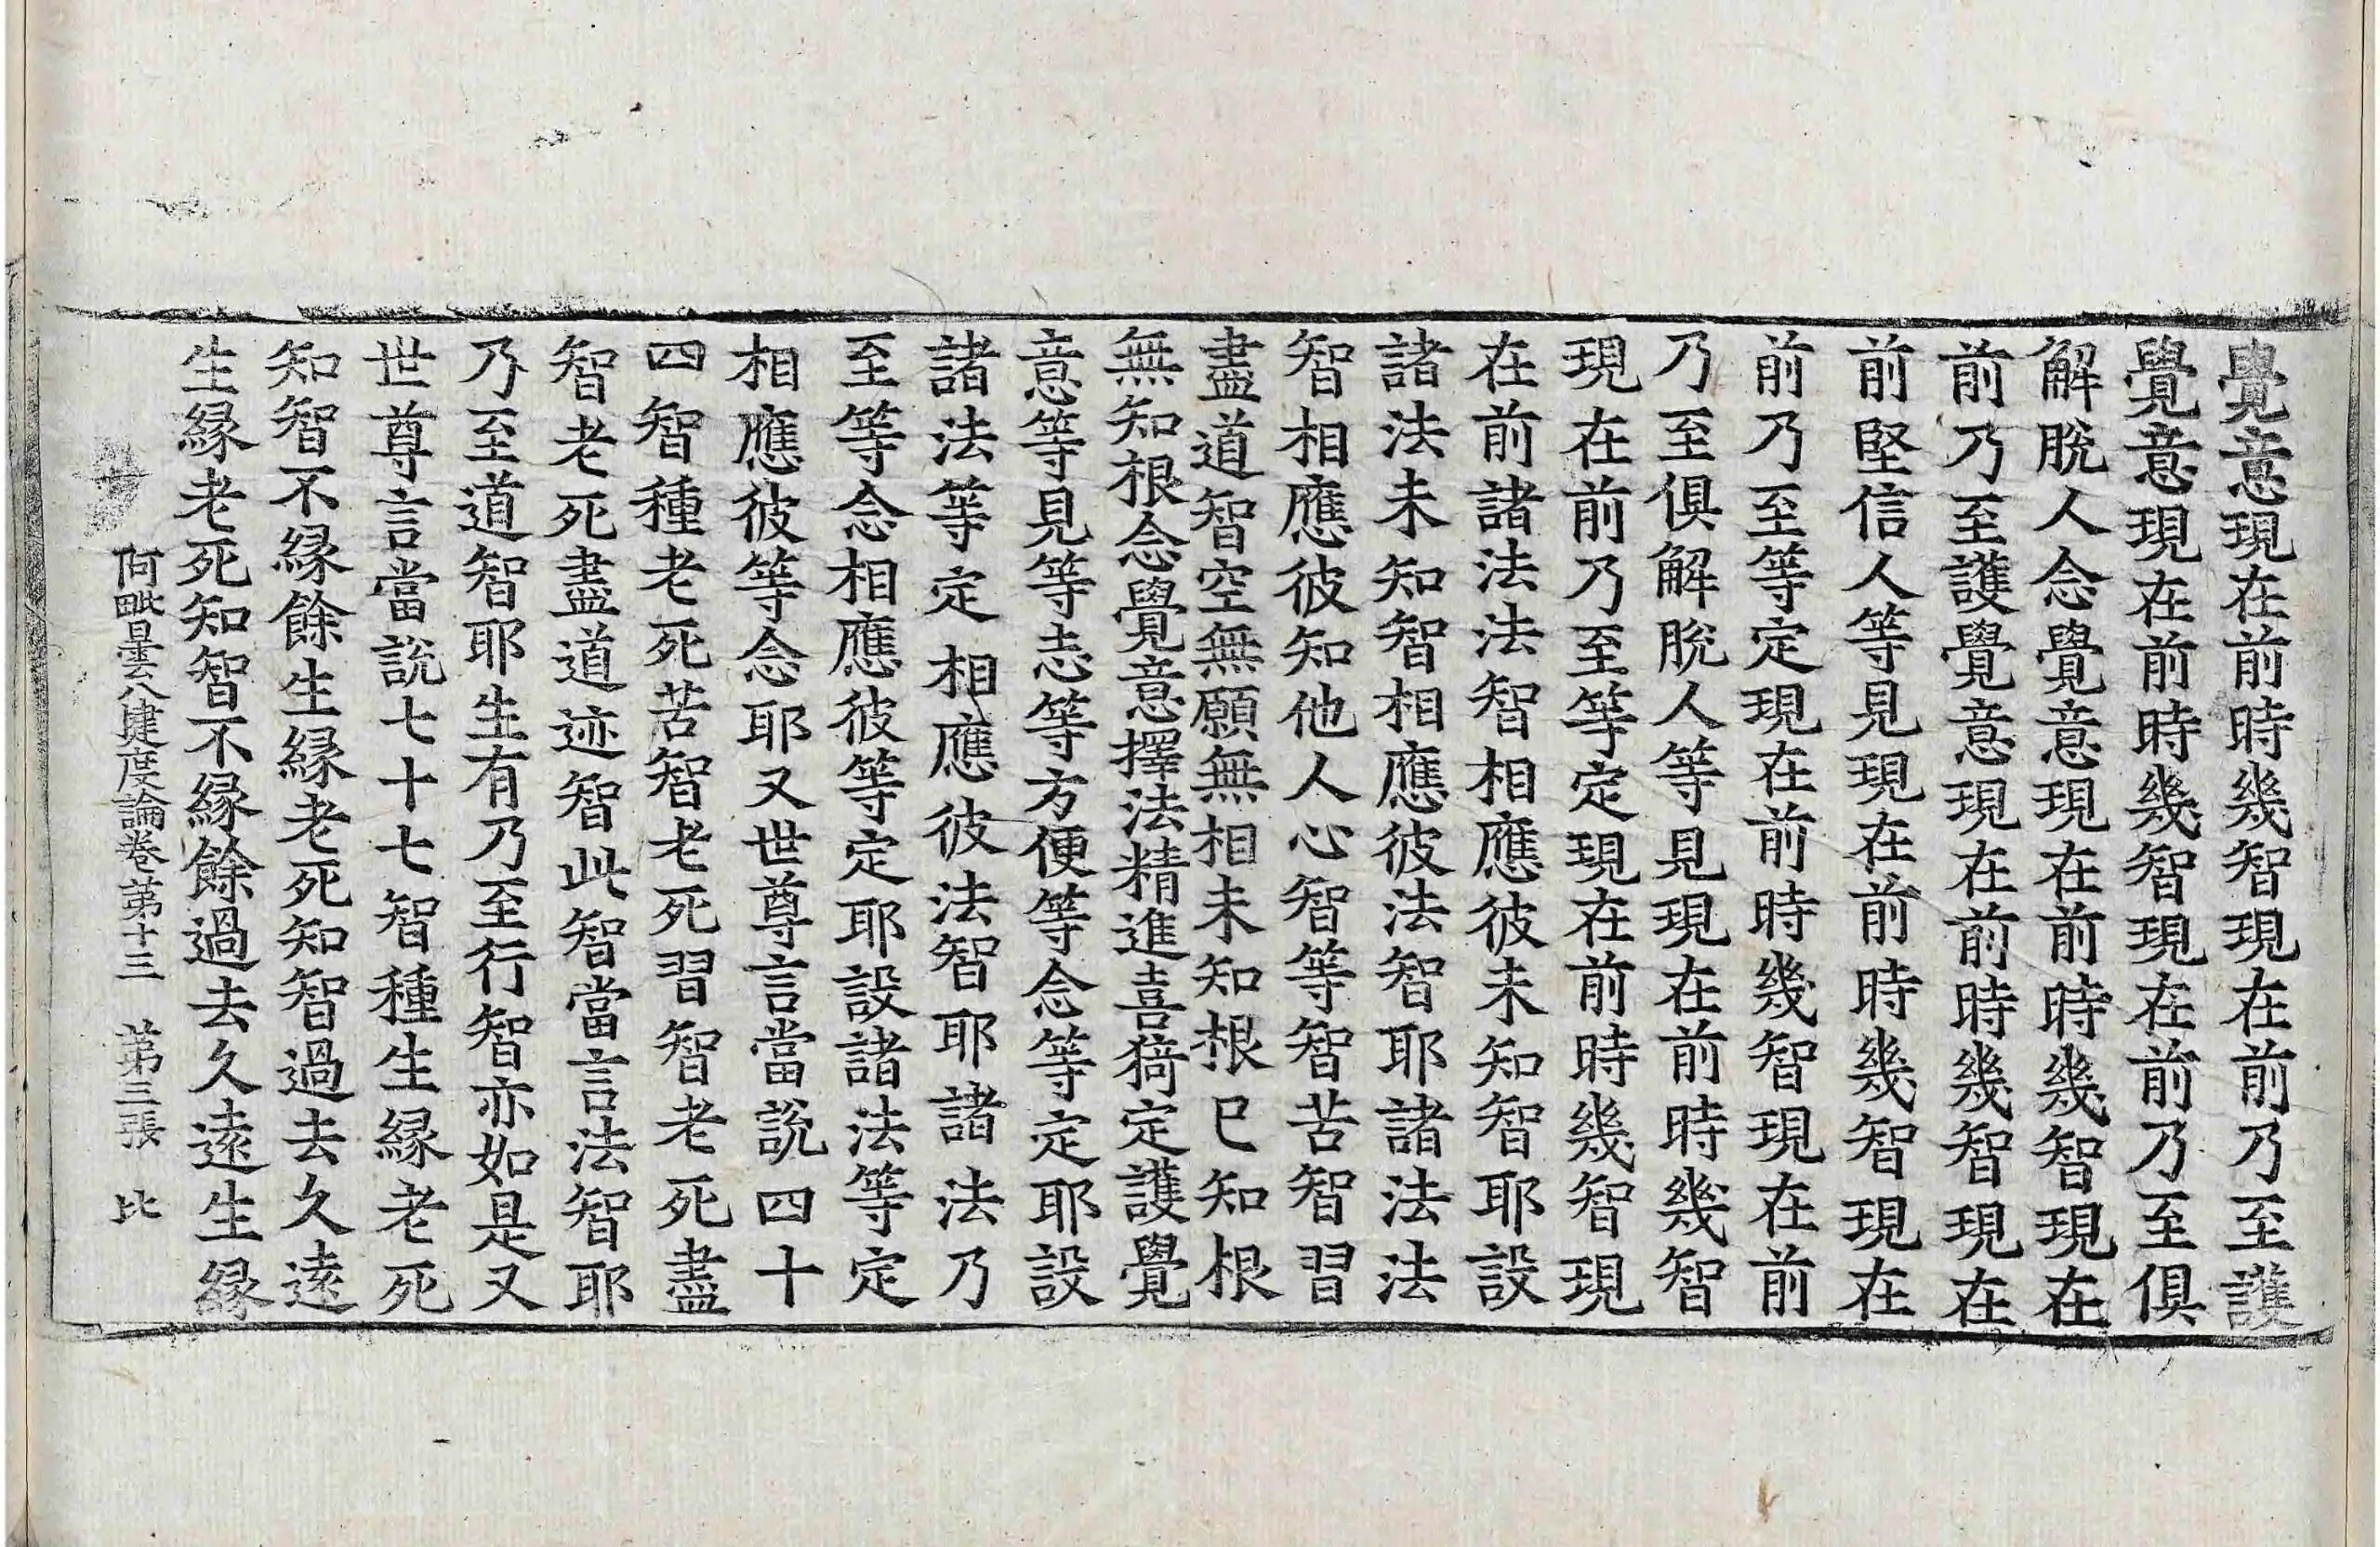 覺意現在前時幾智現在前乃至護
覺意現在前時幾智現在前乃至俱
解脫人念覺意現在前時幾智現在
前乃至護覺意現在前時幾智現在
前堅信人等見現在前時幾智現在
前乃至等定現在前時幾智現在前
乃至俱解脫人等見現在前時幾智
現在前乃至等定現在前時幾智現
在前諸法法智相應彼未知智耶設
諸法未知智相應彼法智耶諸法法
智相應彼知他人心智等智苦智習
盡道智空無願無相未知根已知根
無知根念覺意擇法精進喜猗定護覺
意等見等志等方便等念等定耶設
諸法等定相應彼法智耶諸法乃
至等念相應彼等定耶設諸法等定
相應彼等念耶又世尊言當說四十
四智種老死苦智老死習智老死盡
智老死盡道迹智此智當言法智耶
乃至道智耶生有乃至行智亦如是又
世尊言當說七十七智種生緣老死
知智不緣餘生緣老死知智過去久遠
生緣老死知智不緣餘過去久遠生緣
阿毗曇八犍度論卷第十三 第三張 比